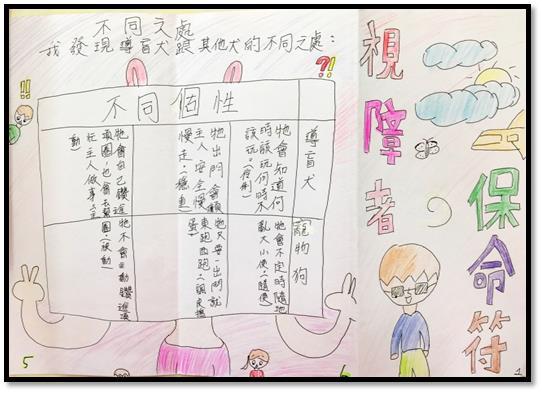 視障者
保命符
1
不同之處
我發現導盲犬跟其他犬的不同之處：
!!
?!
不同個性
導盲犬
牠會知道何
時該玩何時不
該玩。(控制)
牠出門會顧
主人安全慢
慢走。(穩重)
牠會自己鑽進
項圈，也會去
玩主人做事。(主
動)
寵物狗
牠會不定時隨地
亂大小便。(隨便)
牠只要一出門就
東跑西跑。(調皮搗
蛋)
牠不會主動鑽進項
圈。(被動)
5